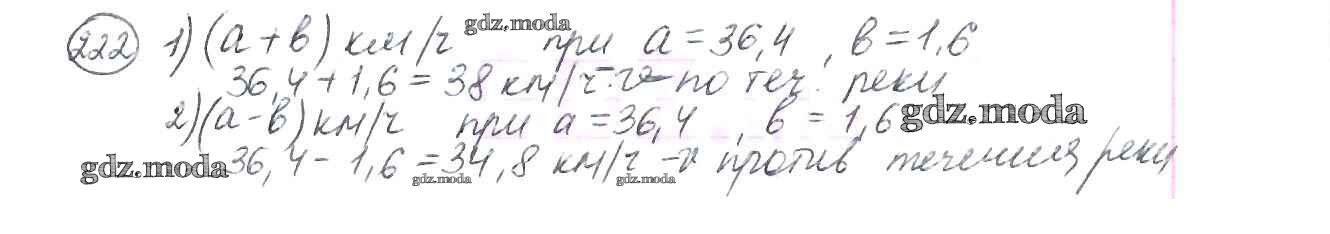 222 1) (а+в) км/ч gdz.moda при а = 36,4, в = 1,6
36,4 + 1,6 = 38 км/ч - v - по теч. реки
2) (а-в) км/ч при а = 36,4, в = 1,6 gdz.moda
gdz.moda 36,4 - 1,6 = 34,8 км/ч - v против течения реки
gdz.moda gdz.moda